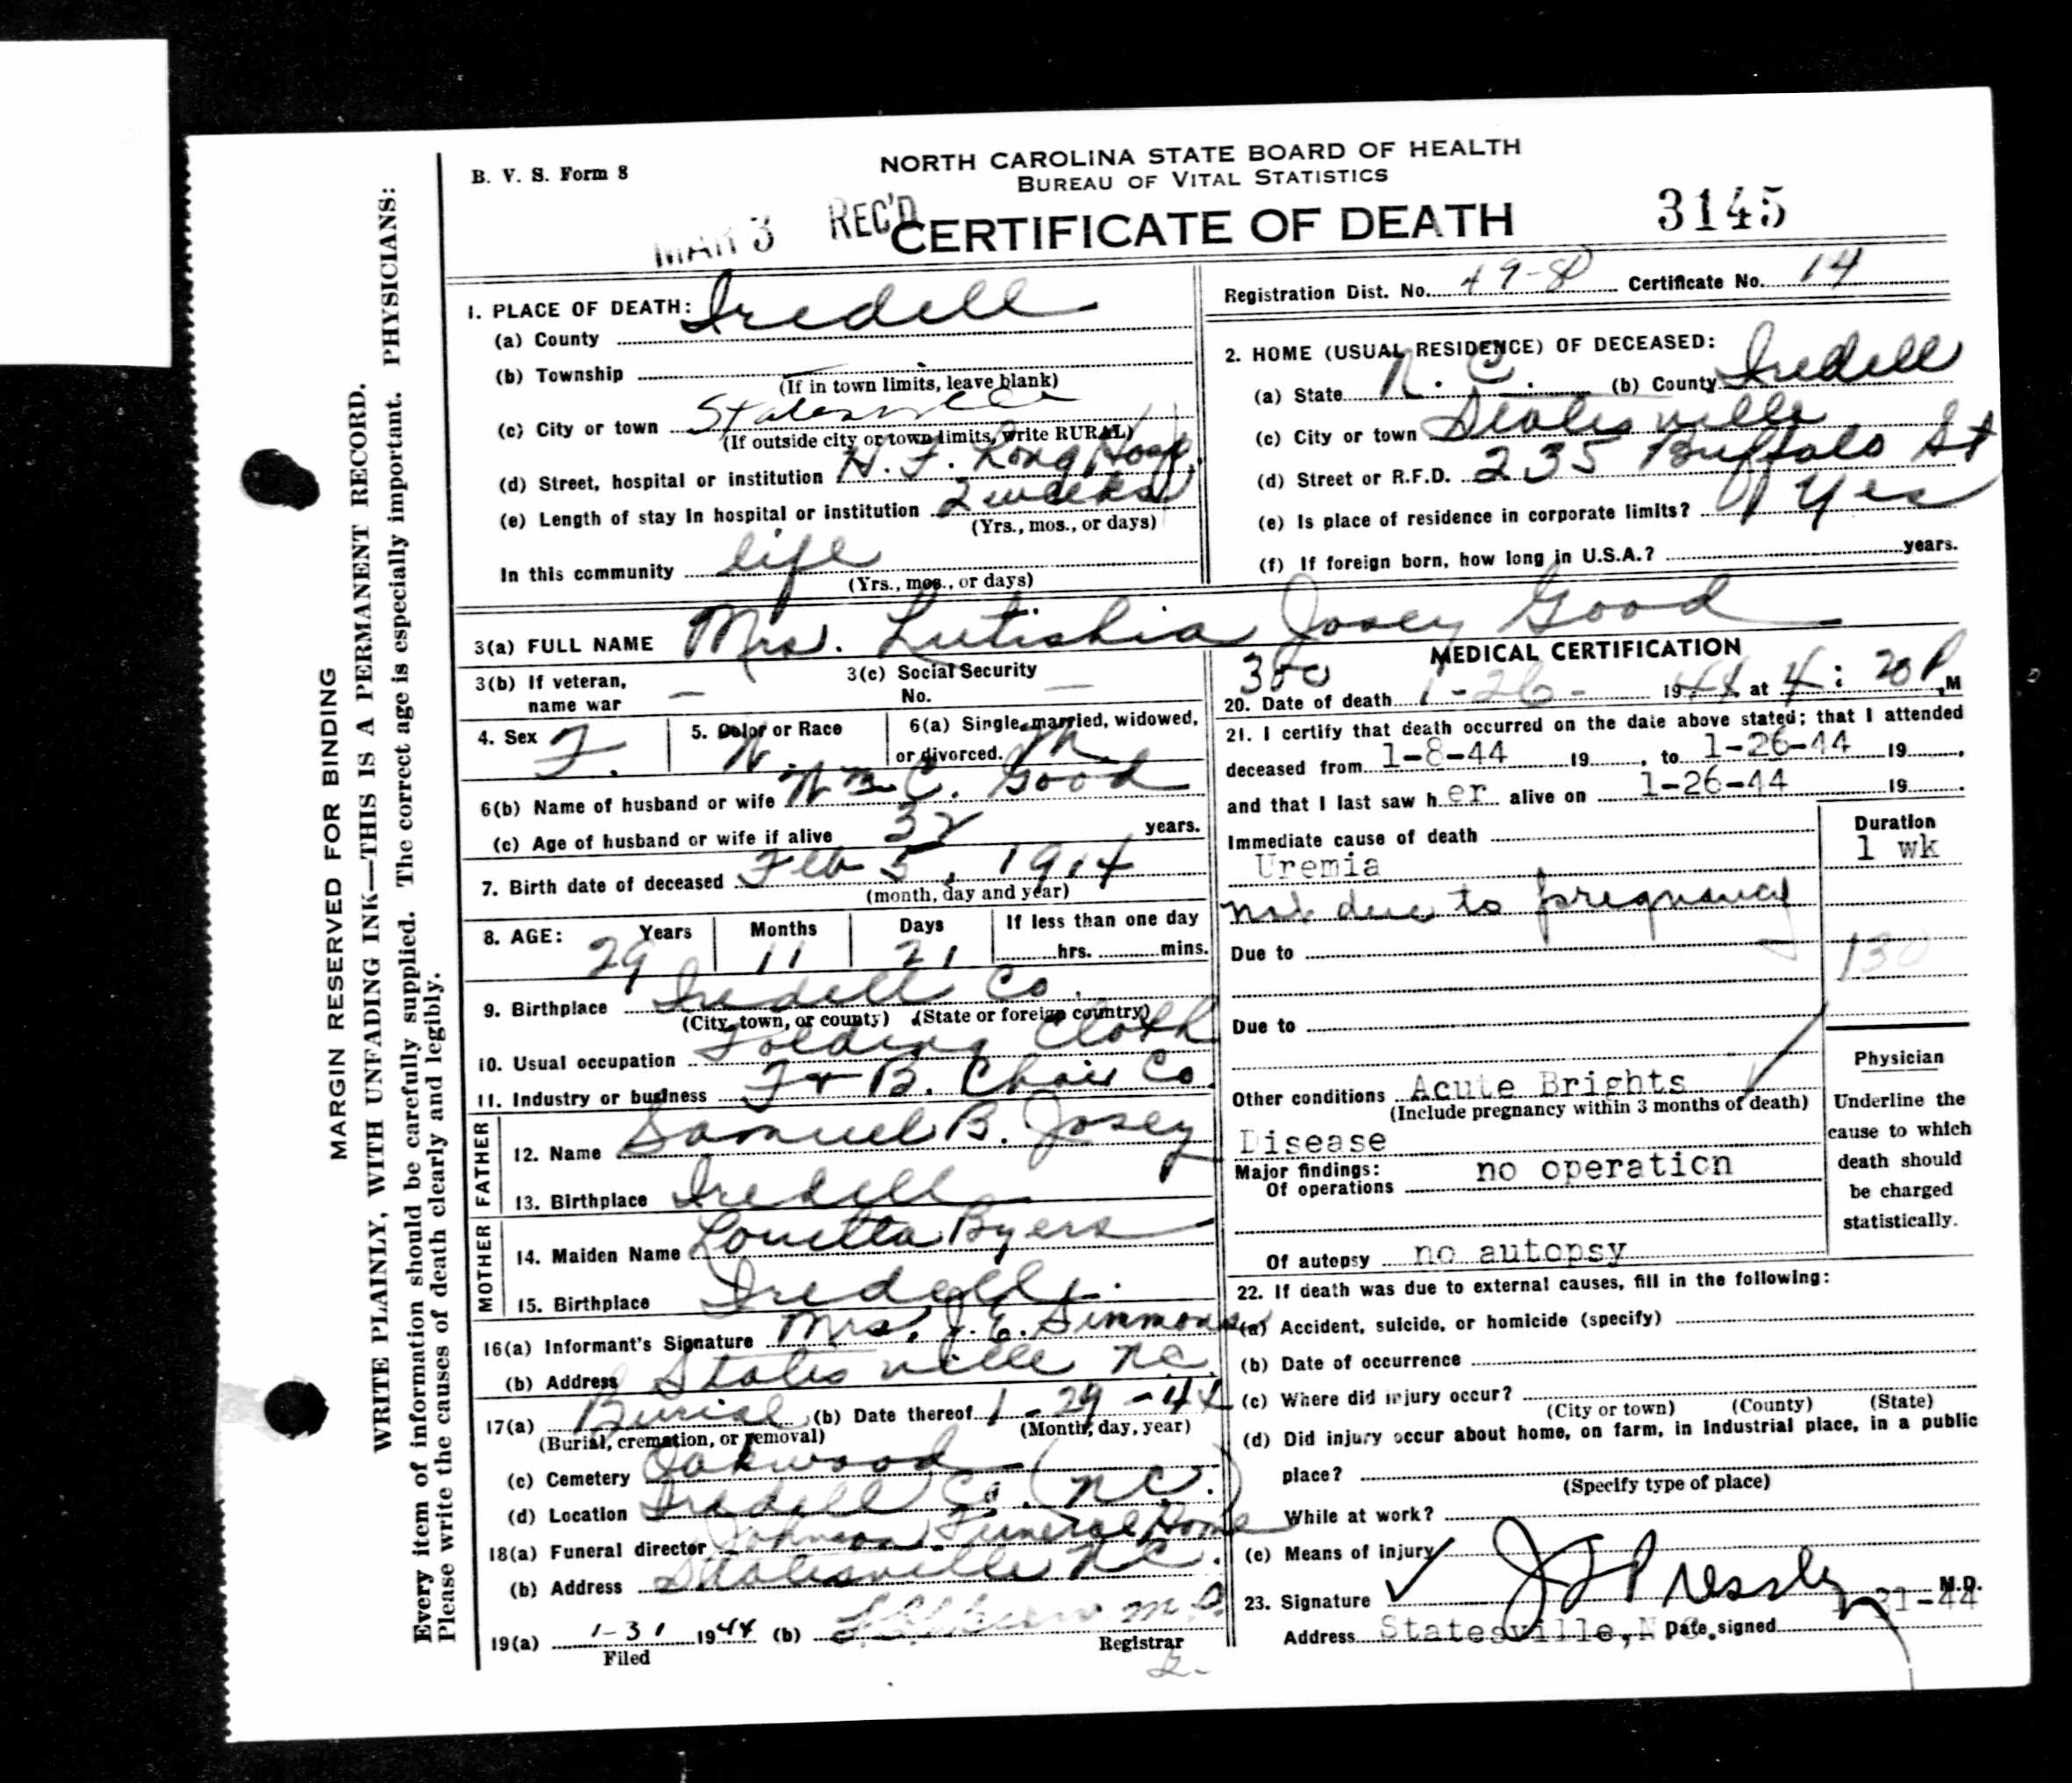 B. V. S. Form 8
NORTH CAROLINA STATE BOARD OF HEALTH
BUREAU OF VITAL STATISTICS
MAR 3 REC'D
CERTIFICATE OF DEATH
3145
MARGIN RESERVED FOR BINDING
WRITE PLAINLY, WITH UNFADING INK—THIS IS A PERMANENT RECORD.
Every item of information should be carefully supplied. The correct age is especially important. PHYSICIANS:
Please write the causes of death clearly and legibly.
1. PLACE OF DEATH:
(a) County Iredell
(b) Township
(If in town limits, leave blank)
(c) City or town Statesville
(If outside city or town limits, write RURAL)
(d) Street, hospital or institution H. F. Long Hosp.
(e) Length of stay in hospital or institution 2 weeks
(Yrs., mos., or days)
In this community life
(Yrs., mos., or days)
Registration Dist. No. 49-8 Certificate No. 14
2. HOME (USUAL RESIDENCE) OF DECEASED:
(a) State N. C. (b) County Iredell
(c) City or town Statesville
(d) Street or R.F.D. 235 Buffalo St
(e) Is place of residence in corporate limits? Yes
(f) If foreign born, how long in U.S.A.? years.
3(a) FULL NAME Mrs. Lutishia Josey Good
3(b) If veteran, name war —
3(c) Social Security No. —
4. Sex F.
5. Color or Race W.
6(a) Single, married, widowed, or divorced. M.
6(b) Name of husband or wife Wm C. Good
(c) Age of husband or wife if alive 32 years.
7. Birth date of deceased Feb 5, 1914
(month, day and year)
8. AGE: Years 29 Months 11 Days 21 If less than one day hrs. mins.
9. Birthplace Iredell Co.
(City, town, or county) (State or foreign country)
10. Usual occupation Folding Cloth
11. Industry or business F & B. Chair Co.
FATHER
12. Name Samuel B. Josey
13. Birthplace Iredell
MOTHER
14. Maiden Name Louetta Byers
15. Birthplace Iredell
16(a) Informant's Signature Mrs. J. E. Simmons
(b) Address Statesville N.C.
17(a) Burial (b) Date thereof 1-29-44
(Burial, cremation, or removal) (Month, day, year)
(c) Cemetery Oakwood
(d) Location Iredell Co. (N.C.)
18(a) Funeral director Johnson Funeral Home
(b) Address Statesville N.C.
19(a) 1-31 1944 (b) M.D.
Filed Registrar
300 MEDICAL CERTIFICATION
20. Date of death 1-26- 1944 at 4:20 P.M
21. I certify that death occurred on the date above stated; that I attended
deceased from 1-8-44 19, to 1-26-44 19,
and that I last saw her alive on 1-26-44 19.
Immediate cause of death
Duration
Uremia 1 wk
not due to pregnancy
Due to 130
Due to
Other conditions Acute Brights
(Include pregnancy within 3 months of death)
Disease
Major findings:
Of operations no operation
Of autopsy no autopsy
Physician
Underline the
cause to which
death should
be charged
statistically.
22. If death was due to external causes, fill in the following:
(a) Accident, suicide, or homicide (specify)
(b) Date of occurrence
(c) Where did injury occur?
(City or town) (County) (State)
(d) Did injury occur about home, on farm, in industrial place, in a public
place?
(Specify type of place)
While at work?
(e) Means of injury
23. Signature J S Pressly M.D.
Address Statesville, N.C. Date signed 1-31-44